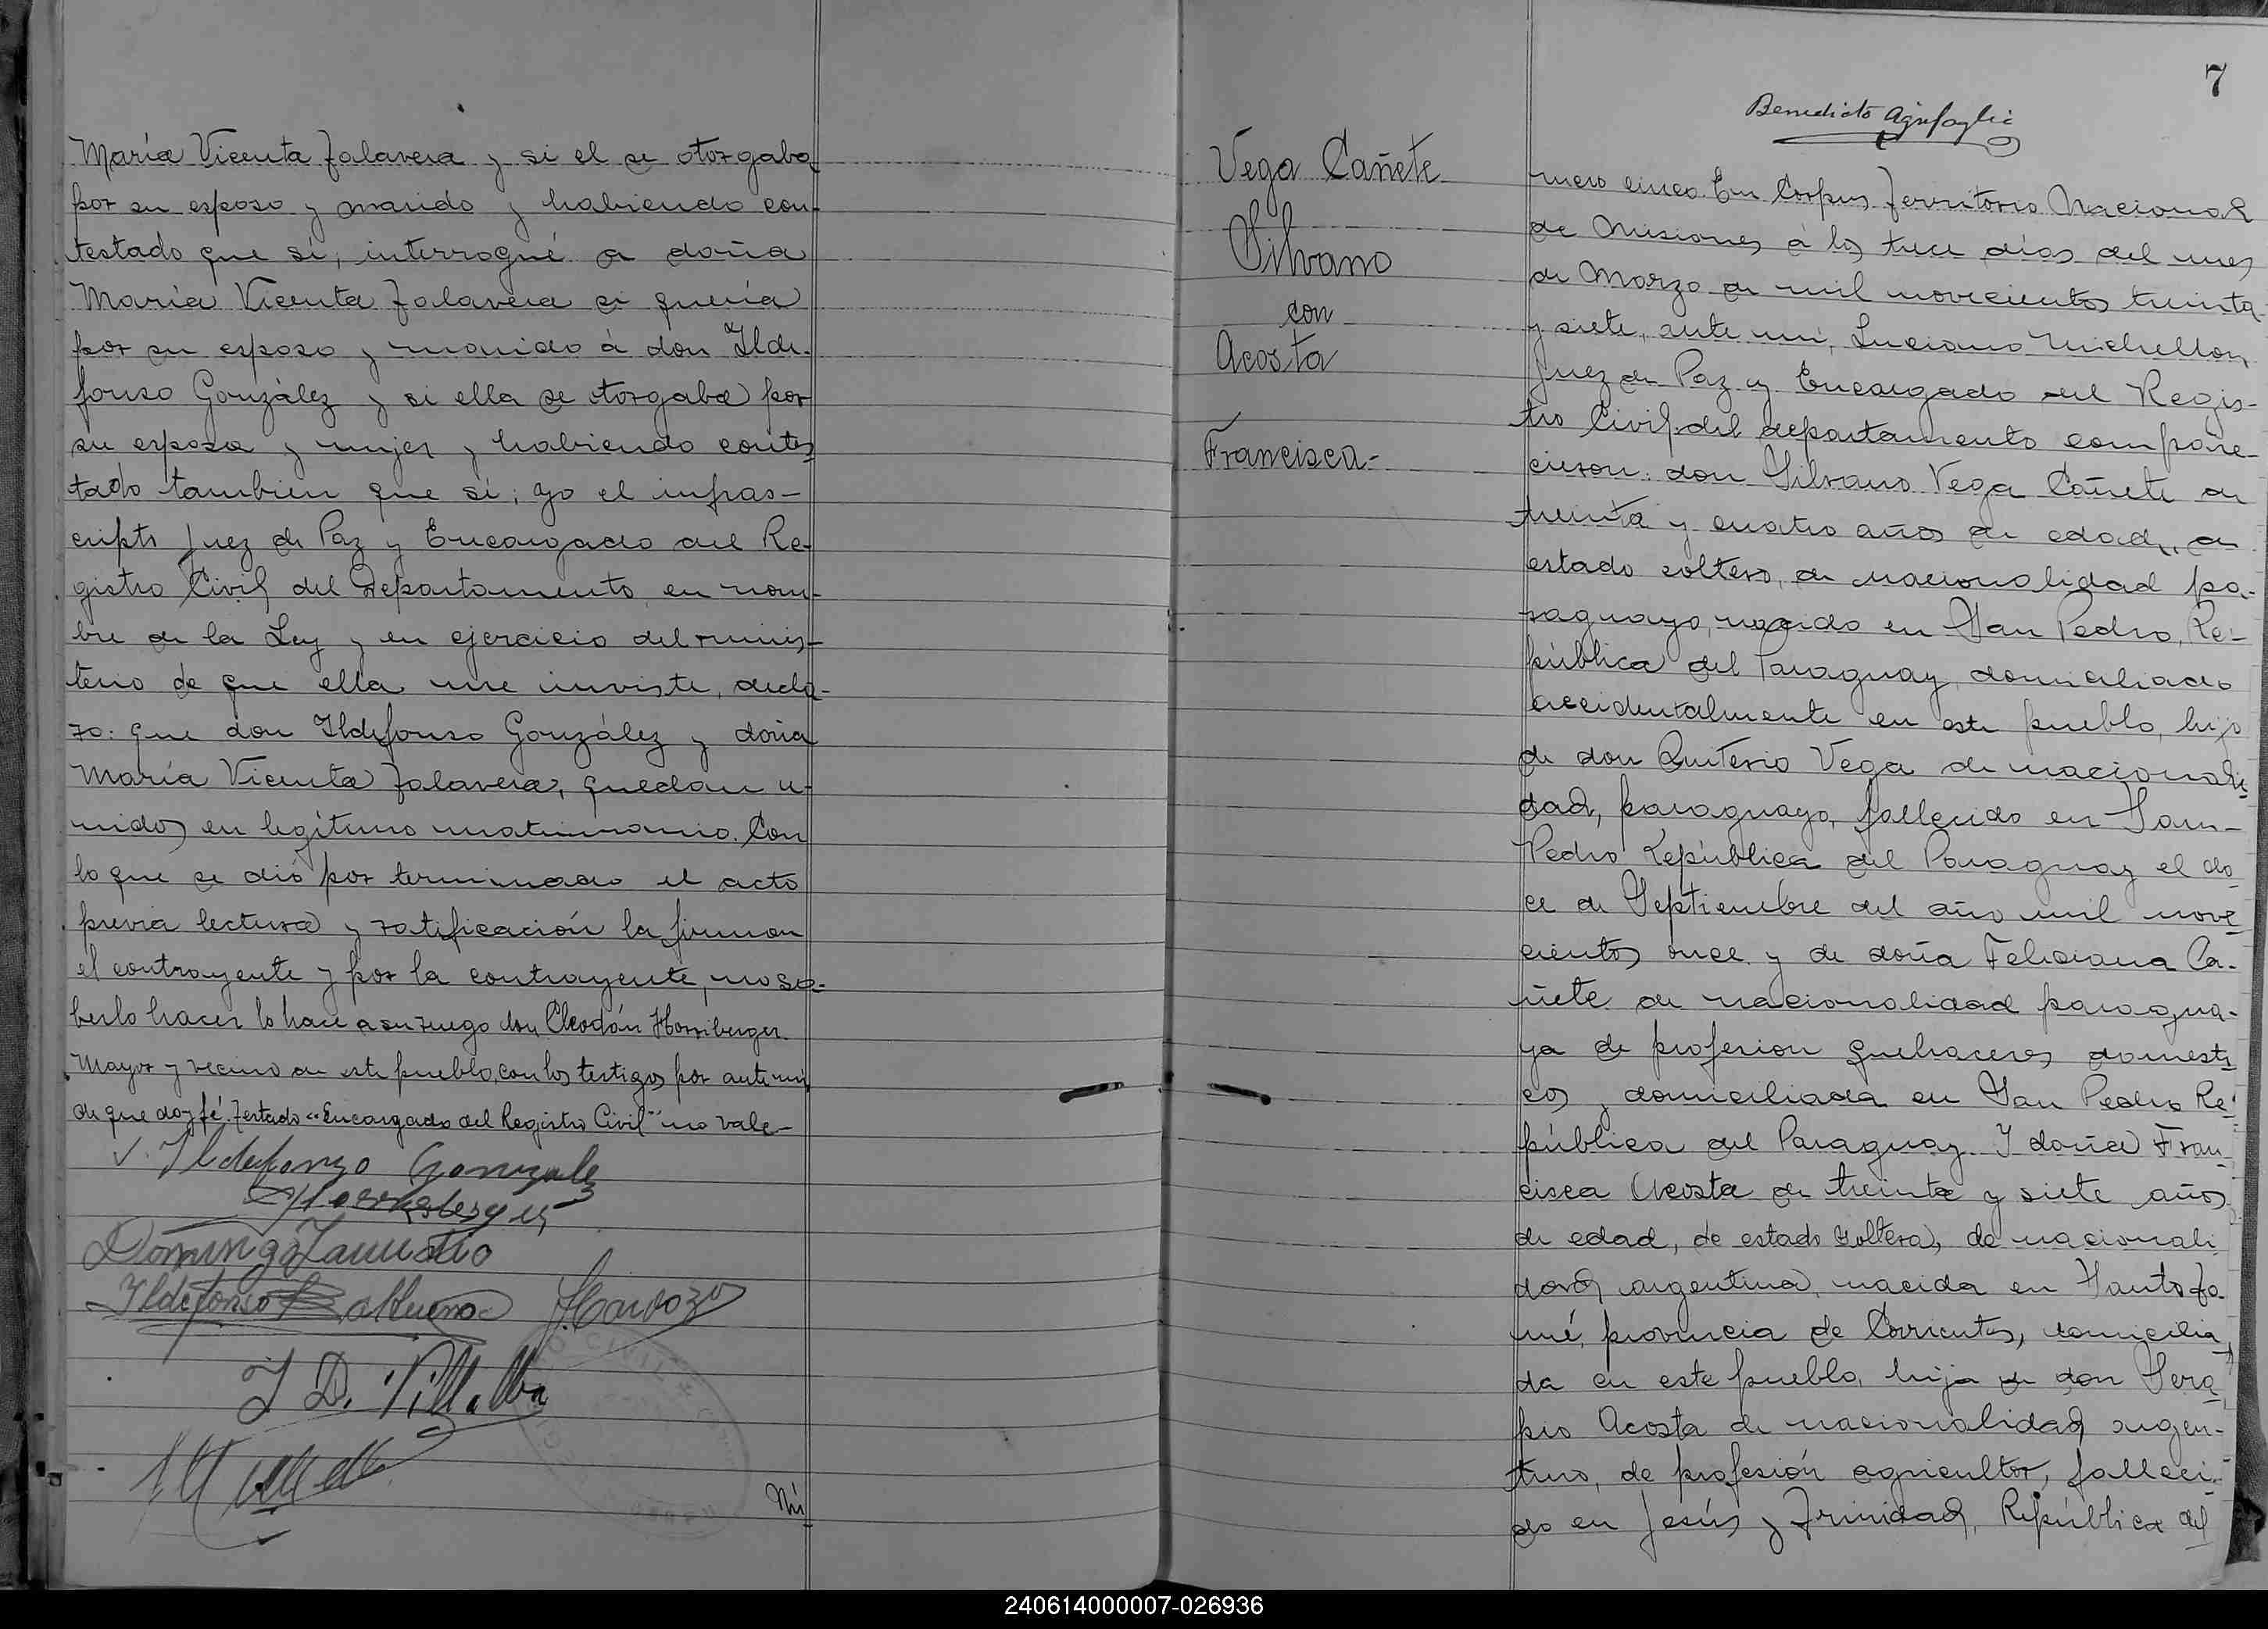 María Vicenta Talavera y si el se otorgaba
por su esposo y marido y habiendo con-
testado que sí, interrogué a doña
María Vicenta Talavera si quería
por su esposo y marido á don Ilde-
fonso González y si ella se otorgaba por
su esposa y mujer y habiendo contes
tado tambien que sí; yo el infras-
cripto Juez de Paz y Encargado del Re-
gistro Civil del Departamento, en nom-
bre de la Ley y en ejercicio del minis-
terio de que ella me inviste, decla-
ro: que don Ildefonso González y doña
María Vicenta Talavera, quedan u-
nidos en legítimo matrimonio. Con
lo que se dió por terminado el acto
previa lectura y ratificación la firman
el contrayente y por la contrayente, no sa-
berlo hacer lo hace a su ruego don Cleodón Horriberger
Mayor y vecino de este pueblo, con los testigos por ante mi
de que doy fé. Testado "Encargado del Registro Civil" no vale-
Ildefonzo Gonzalez
Domingo
Ildefonso
J. Cardozo
J D. Villalba
Nú
7
Benedicto
Vega Cañete
Silvano
con
Acosta
Francisca-
mero cinco. En Corpus Territorio Nacional
de Misiones á los trece días del mes
de Marzo de mil novecientos treinta
y siete, ante mí, Luciano Michellon,
Juez de Paz y Encargado del Regis-
tro Civil del departamento compare-
cieron: don Silvano Vega Cañete de
treinta y cuatro años de edad, de
estado soltero, de nacionalidad pa-
raguayo, nacido en San Pedro, Re-
pública del Paraguay, domiciliado
accidentalmente en este pueblo, hijo
de don Quiterio Vega de nacionali-
dad, paraguayo, fallecido en San-
Pedro República del Paraguay el do
ce de Septiembre del año mil nove
cientos once y de doña Feliciana Ca-
ñete de nacionalidad paragua-
ya de profesion quehaceres domesti
cos y domiciliada en San Pedro Re-
pública del Paraguay. Y doña Fran-
cisca Acosta de treinta y siete años
de edad, de estado soltera, de nacionali
dad argentina, nacida en Santo To-
mé, provincia de Corrientes, domicilia
da en este pueblo, hija de don Sera
pio Acosta de nacionalidad argen-
tino, de profesión agricultor, falleci-
do en Jesús y Trinidad, República del
240614000007-026936